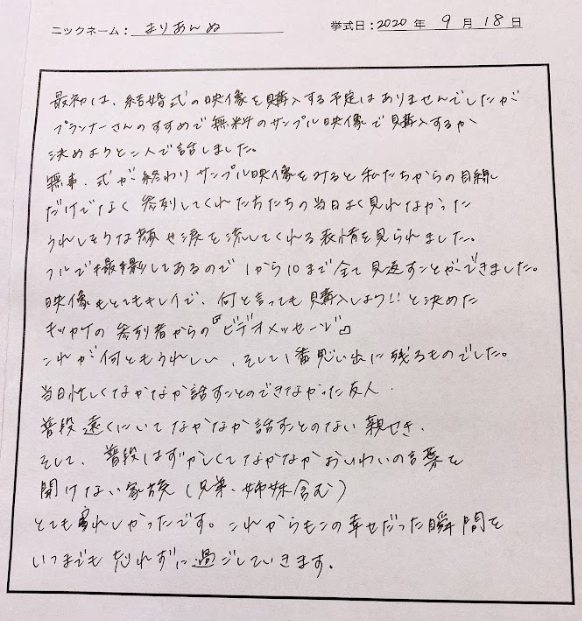 ニックネーム: まりあんぬ 挙式日: 2020 年 9 月 18 日
最初は、結婚式の映像を購入する予定はありませんでしたが
プランナーさんのすすめで無料のサンプル映像で購入するか
決めようと二人で話しました。
無事、式が終わりサンプル映像をみると私たちからの目線
だけでなく参列してくれた方たちの当日よく見れなかった
うれしそうな顔や涙を流してくれる表情を見られました。
フルで撮影してあるので1から10まで全て見返すことができました。
映像もとてもキレイで、何と言っても購入しよう!!と決めた
キッカケの参列者からの『ビデオメッセージ』
これが何ともうれしい、そして1番思い出に残るものでした。
当日忙しくなかなか話すことのできなかった友人、
普段遠くにいてなかなか話すことのない親せき、
そして、普段はずかしくてなかなかおいわいの言葉を
聞けない家族(兄弟、姉妹含む)
とても嬉しかったです。これからもこの幸せだった瞬間を
いつまでも忘れずに過ごしていきます。